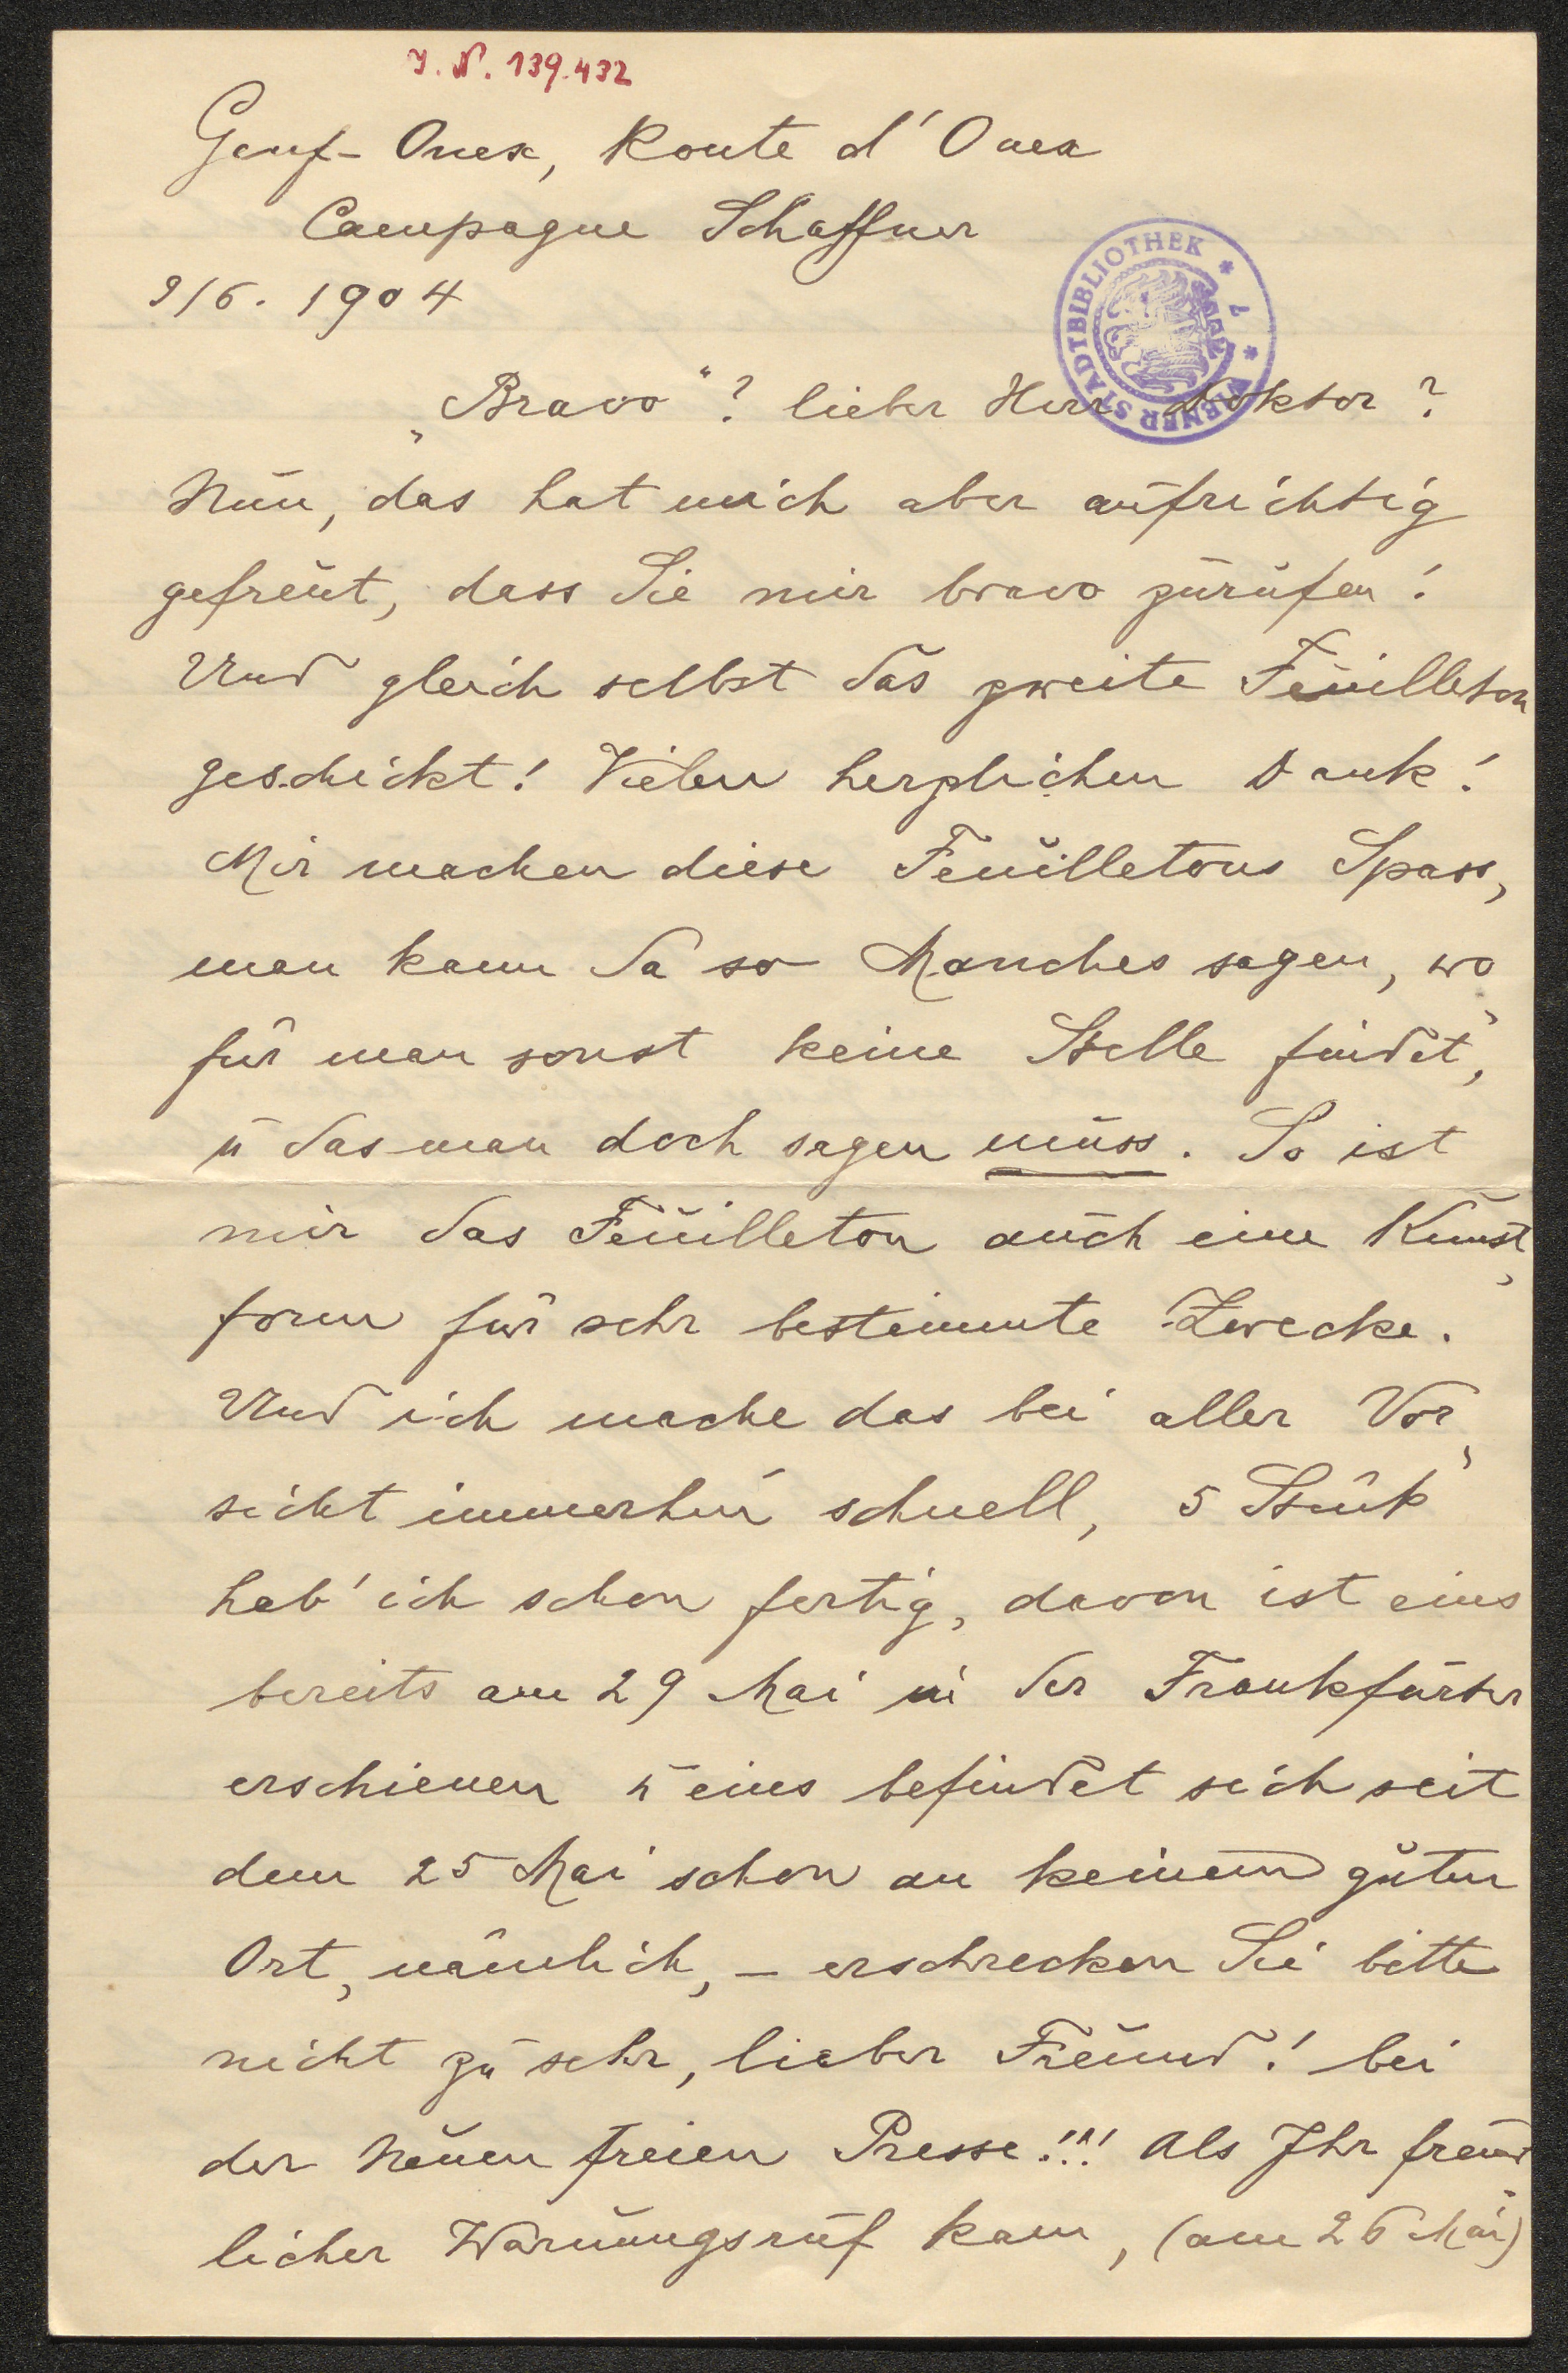 J. N. 139.432
Genf-Onex, Route d'Onex
Campagne Schaffner
9/6. 1904
WIENER STADTBIBLIOTHEK
„Bravo"? lieber Herr Doktor?
Nun, das hat mich aber aufrichtig
gefreut, dass Sie mir bravo zurufen!
Und gleich selbst das zweite Feuilleton
geschickt! Vielen herzlichen Dank!
Mir machen diese Feuilletons Spass,
man kann da so Manches sagen, wo
für man sonst keine Stelle findet,
u das man doch sagen muss. So ist
mir das Feuilleton auch eine Kunst
form für sehr bestimmte Zwecke.
Und ich mache das bei aller Vor
sicht immerhin schnell, 5 Stük
hab' ich schon fertig, davon ist eins
bereits am 29 Mai in der Frankfurter
erschienen u eins befindet sich seit
dem 25 Mai schon an keinem guten
Ort, nämlich, – erschrecken Sie bitte
nicht zu sehr, lieber Freund! bei
der Neuen freien Presse!!! Als Ihr freund
licher Warnungsruf kam, (am 26 Mai)